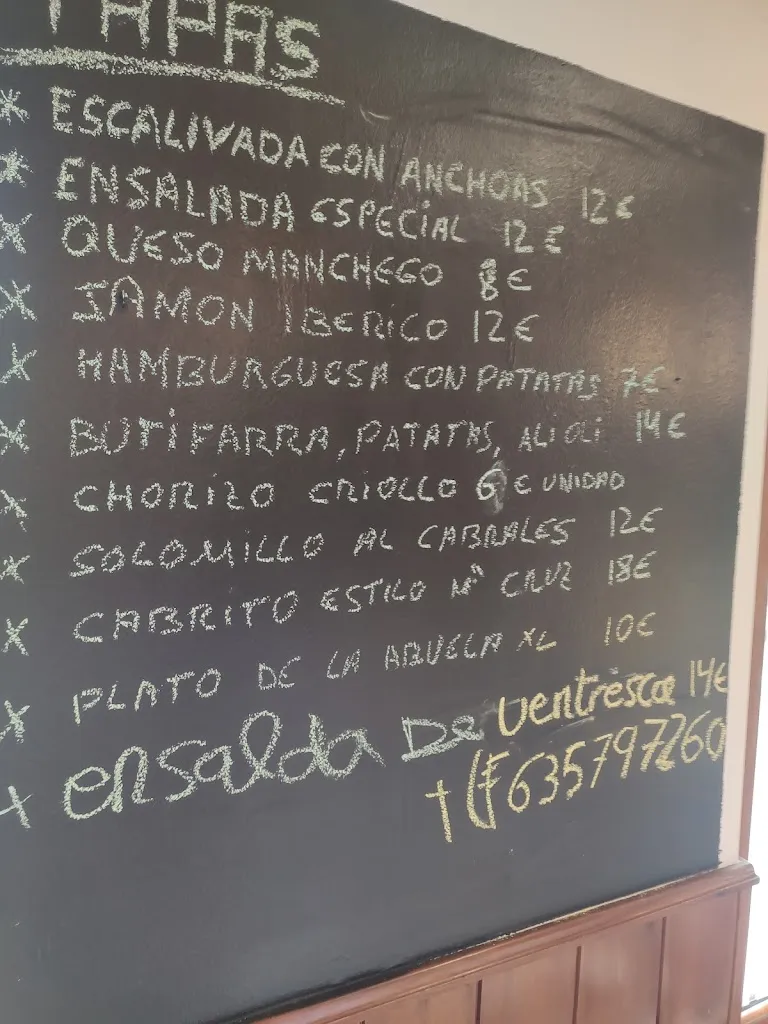 TAPAS
* ESCALIVADA CON ANCHOAS 12€
* ENSALADA ESPECIAL 12€
X QUESO MANCHEGO 8€
X JAMON IBERICO 12€
X HAMBURGUESA CON PATATAS 7€
X BUTIFARRA, PATATAS, ALI OLI 14€
X CHORIZO CRIOLLO 6€ UNIDAD
X SOLOMILLO AL CABRALES 12€
X CABRITO ESTILO Mª CRUZ 18€
X PLATO DE LA ABUELA XL 10€
X ensalda De ventresca 14€
635797260